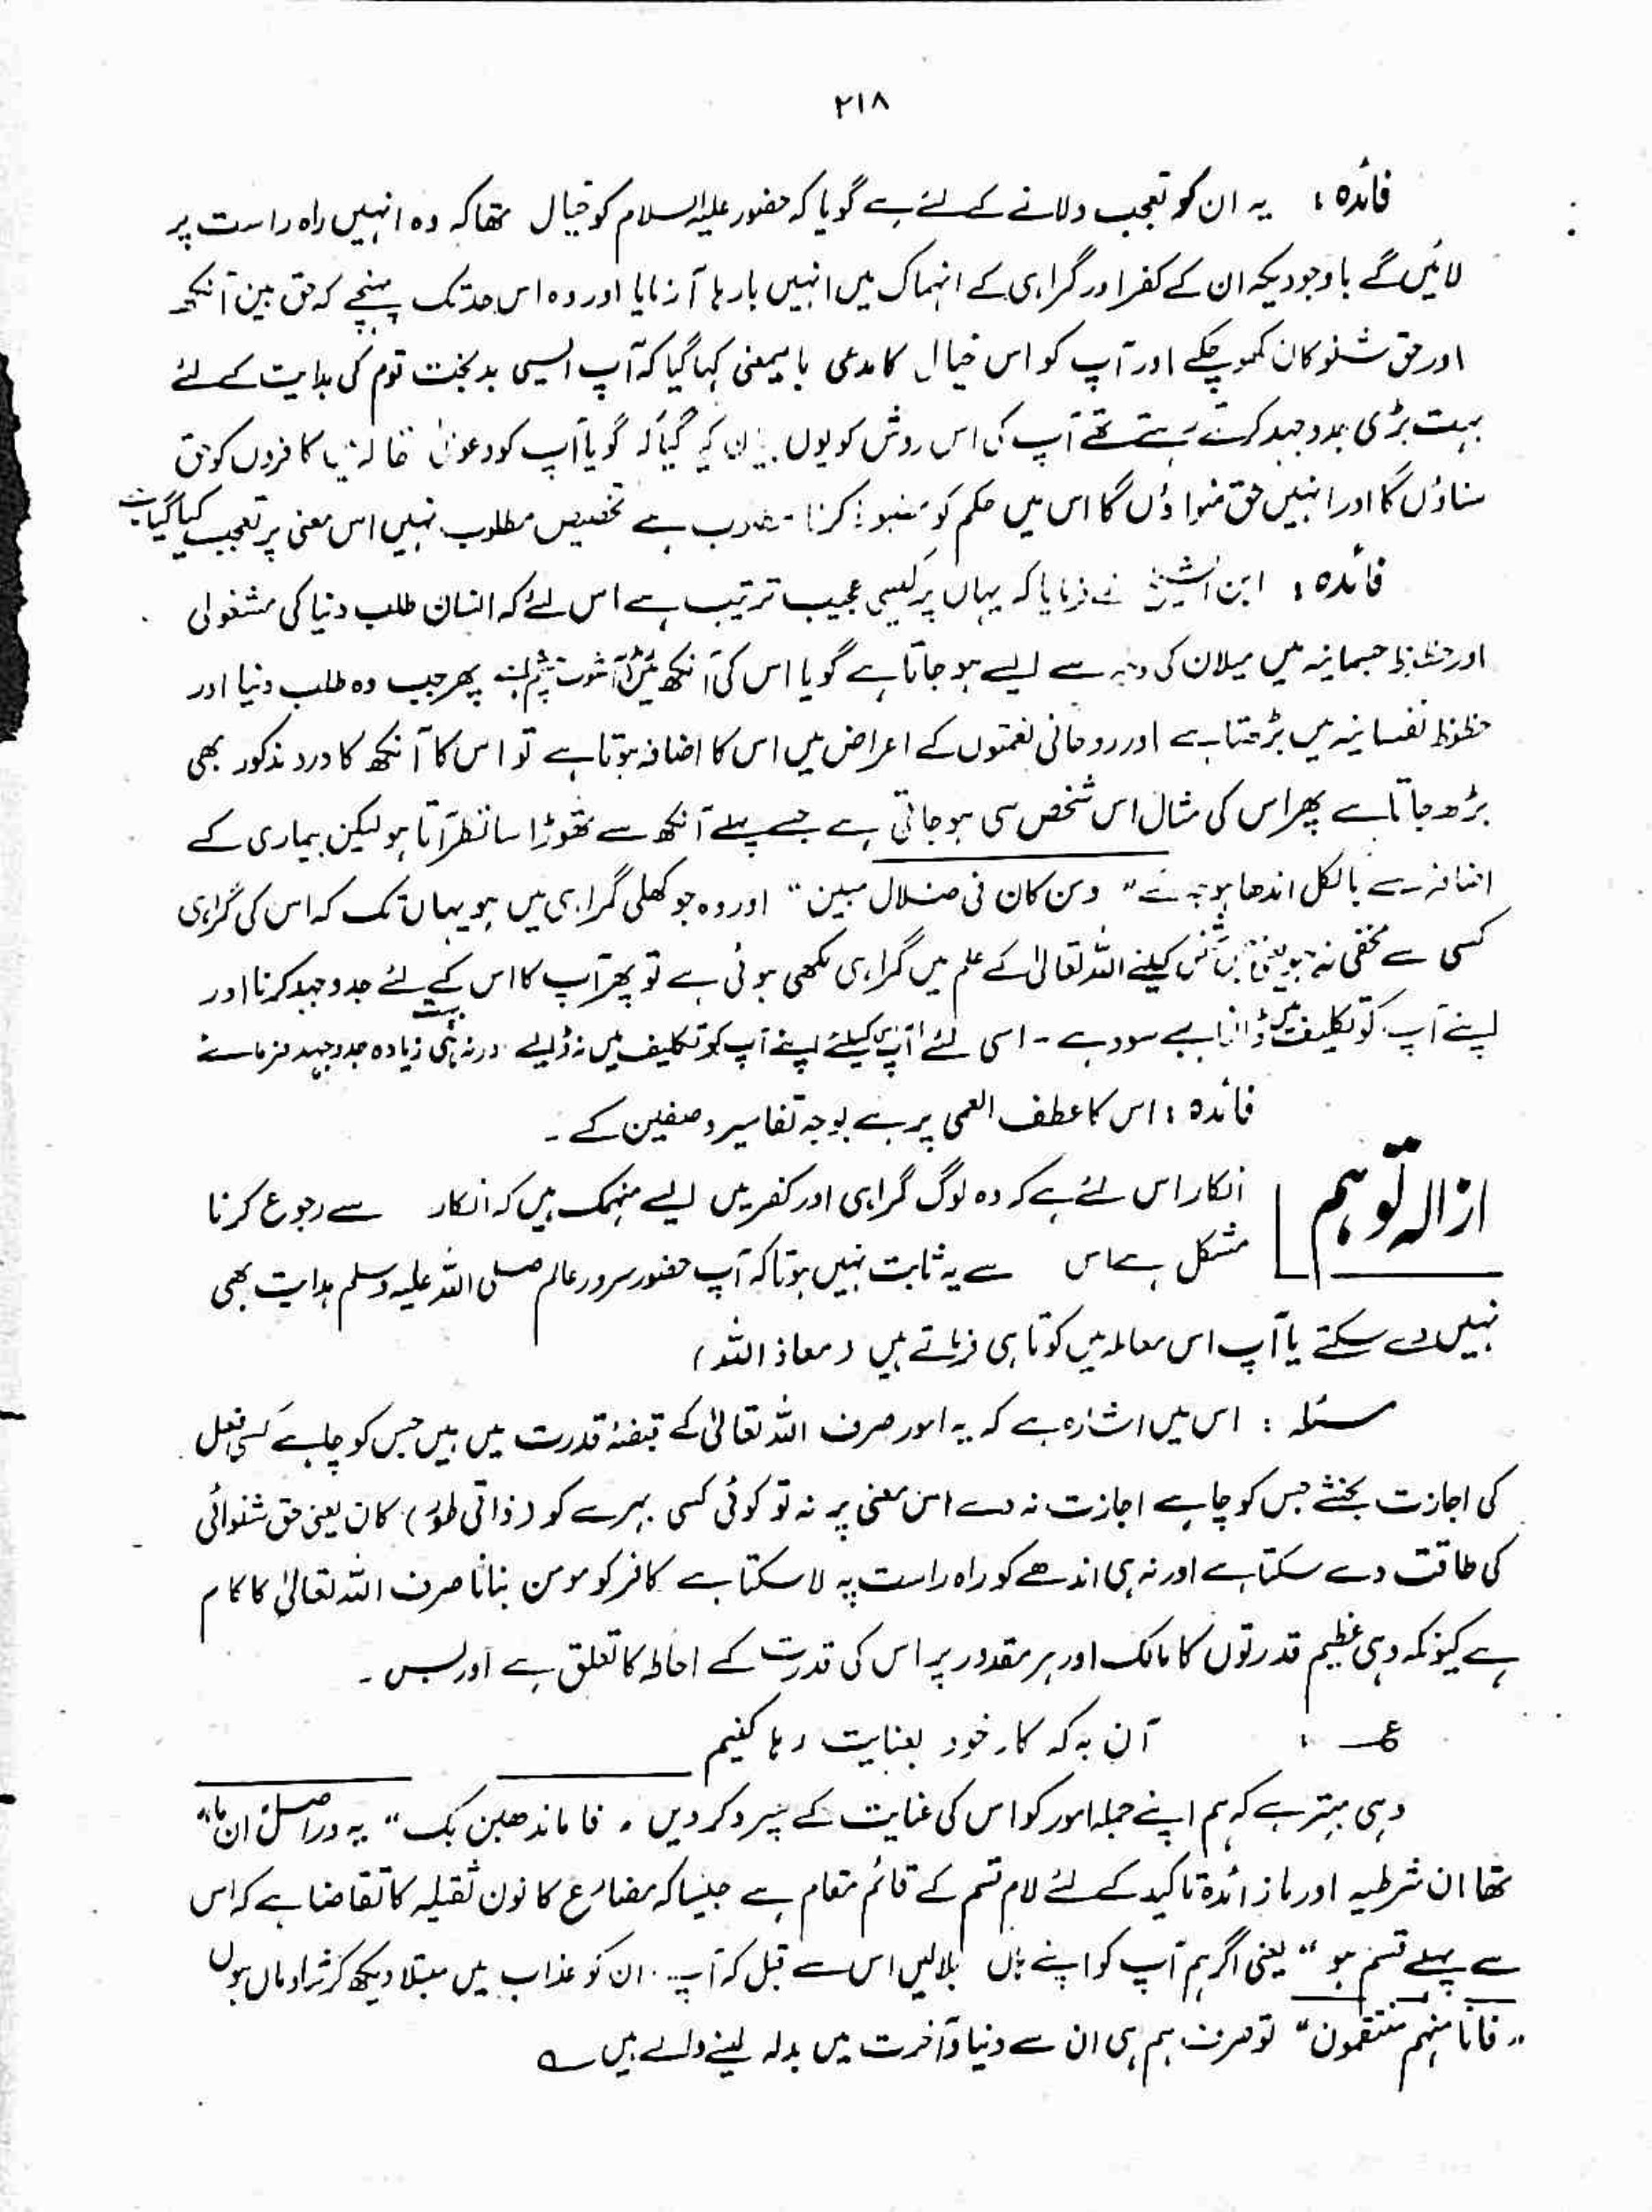 ۲۱۸
فائدہ : یہ ان کو تعجب دلانے کے لئے ہے گویا کہ حضور علیہ السلام کو خیال تھا کہ وہ انہیں راہ راست پر
لائیں گے باوجودیکہ ان کے کفر اور گمراہی کے انہماک میں انہیں بارہا آزمایا اور وہ اس حد تک پہنچے کہ حق بین آنکھ
اور حق شنو کان کھو چکے اور آپ کو اس خیال کا مدعی بایمعنی کہا گیا کہ آپ ایسی بدبخت قوم کی ہدایت کے لئے
بہت بڑی جدوجہد کرتے رہتے تھے آپ کی اس روش کو یوں بیان کیا گیا کہ گویا آپ کو دعویٰ تھا کہ کافروں کو حق
سناؤں گا اور انہیں حق منواؤں گا اس میں حکم کو مضبوط کرنا مطلوب ہے تخصیص مطلوب نہیں اس معنی پر تعجب کیا گیا ہے
فائدہ : ابن الشیخ نے فرمایا کہ یہاں پر کیسی عجیب ترتیب ہے اس لئے کہ انسان طلب دنیا کی مشغولی
اور حظوظ جسمانیہ میں میلان کی وجہ سے ایسے ہو جاتا ہے گویا اس کی آنکھ میں آشوب چشم ہے پھر جب وہ طلب دنیا اور
حظوظ نفسانیہ میں بڑھتا ہے اور روحانی نعمتوں کے اعراض میں اس کا اضافہ ہوتا ہے تو اس کا آنکھ کا درد مذکور بھی
بڑھ جاتا ہے پھر اس کی مثال اس شخص سی ہو جاتی ہے جسے پہلے آنکھ سے تھوڑا سا نظر آتا ہو لیکن بیماری کے
اضافہ سے بالکل اندھا ہو جائے " ومن کان فی ضلال مبین " اور وہ جو کھلی گمراہی میں ہو یہاں تک کہ اس کی گمراہی
کسی سے مخفی نہ ہو یعنی جس کیلئے اللہ تعالیٰ کے علم میں گمراہی لکھی ہوئی ہے تو پھر آپ کا اس کے لئے جدوجہد کرنا اور
اپنے آپ کو تکلیف میں ڈالنا بے سود ہے ۔ اسی لئے آپ کیلئے اپنے آپ کو تکلیف میں نہ ڈالیے اور نہ ہی بہت زیادہ جدوجہد فرمائیے
فائدہ : اس کا عطف العمی پر ہے بوجہ تغایر وصفین کے ۔
ازالہ توہم
انکار اس لئے ہے کہ وہ لوگ گمراہی اور کفر میں ایسے منہمک ہیں کہ انکار سے رجوع کرنا
مشکل ہے اس سے یہ ثابت نہیں ہوتا کہ آپ حضور سرور عالم صلی اللہ علیہ وسلم ہدایت بھی
نہیں دے سکتے یا آپ اس معاملہ میں کوتاہی فرماتے ہیں (معاذ اللہ)
مسئلہ : اس میں اشارہ ہے کہ یہ امور صرف اللہ تعالیٰ کے قبضۂ قدرت میں ہیں جس کو چاہے کسی فعل
کی اجازت بخشے جس کو چاہے اجازت نہ دے اس معنی پر نہ تو کوئی کسی بہرے کو (ذاتی طور) کان یعنی حق شنوائی
کی طاقت دے سکتا ہے اور نہ ہی اندھے کو راہ راست پہ لا سکتا ہے کافر کو مومن بنانا صرف اللہ تعالیٰ کا کام
ہے کیونکہ وہی عظیم قدرتوں کا مالک اور ہر مقدور پر اس کی قدرت کے احاطہ کا تعلق ہے اور بس ۔
ع : آن بہ کہ کار خود بعنایت رہا کنیم
وہی بہتر ہے کہ ہم اپنے جملہ امور کو اس کی عنایت کے سپرد کر دیں ۔ فاما نذھبن بک " یہ دراصل ان ما "
تھا ان شرطیہ اور ما زائدۃ تاکید کے لئے لام قسم کے قائم مقام ہے جیسا کہ مضارع کا نون ثقیلہ کا تقاضا ہے کہ اس
سے پہلے قسم ہو " یعنی اگر ہم آپ کو اپنے ہاں بلا لیں اس سے قبل کہ آپ ان کو عذاب میں مبتلا دیکھ کر شاداں ہوں
" فانا منہم منتقمون " تو صرف ہم ہی ان سے دنیا و آخرت میں بدلہ لینے والے ہیں ے